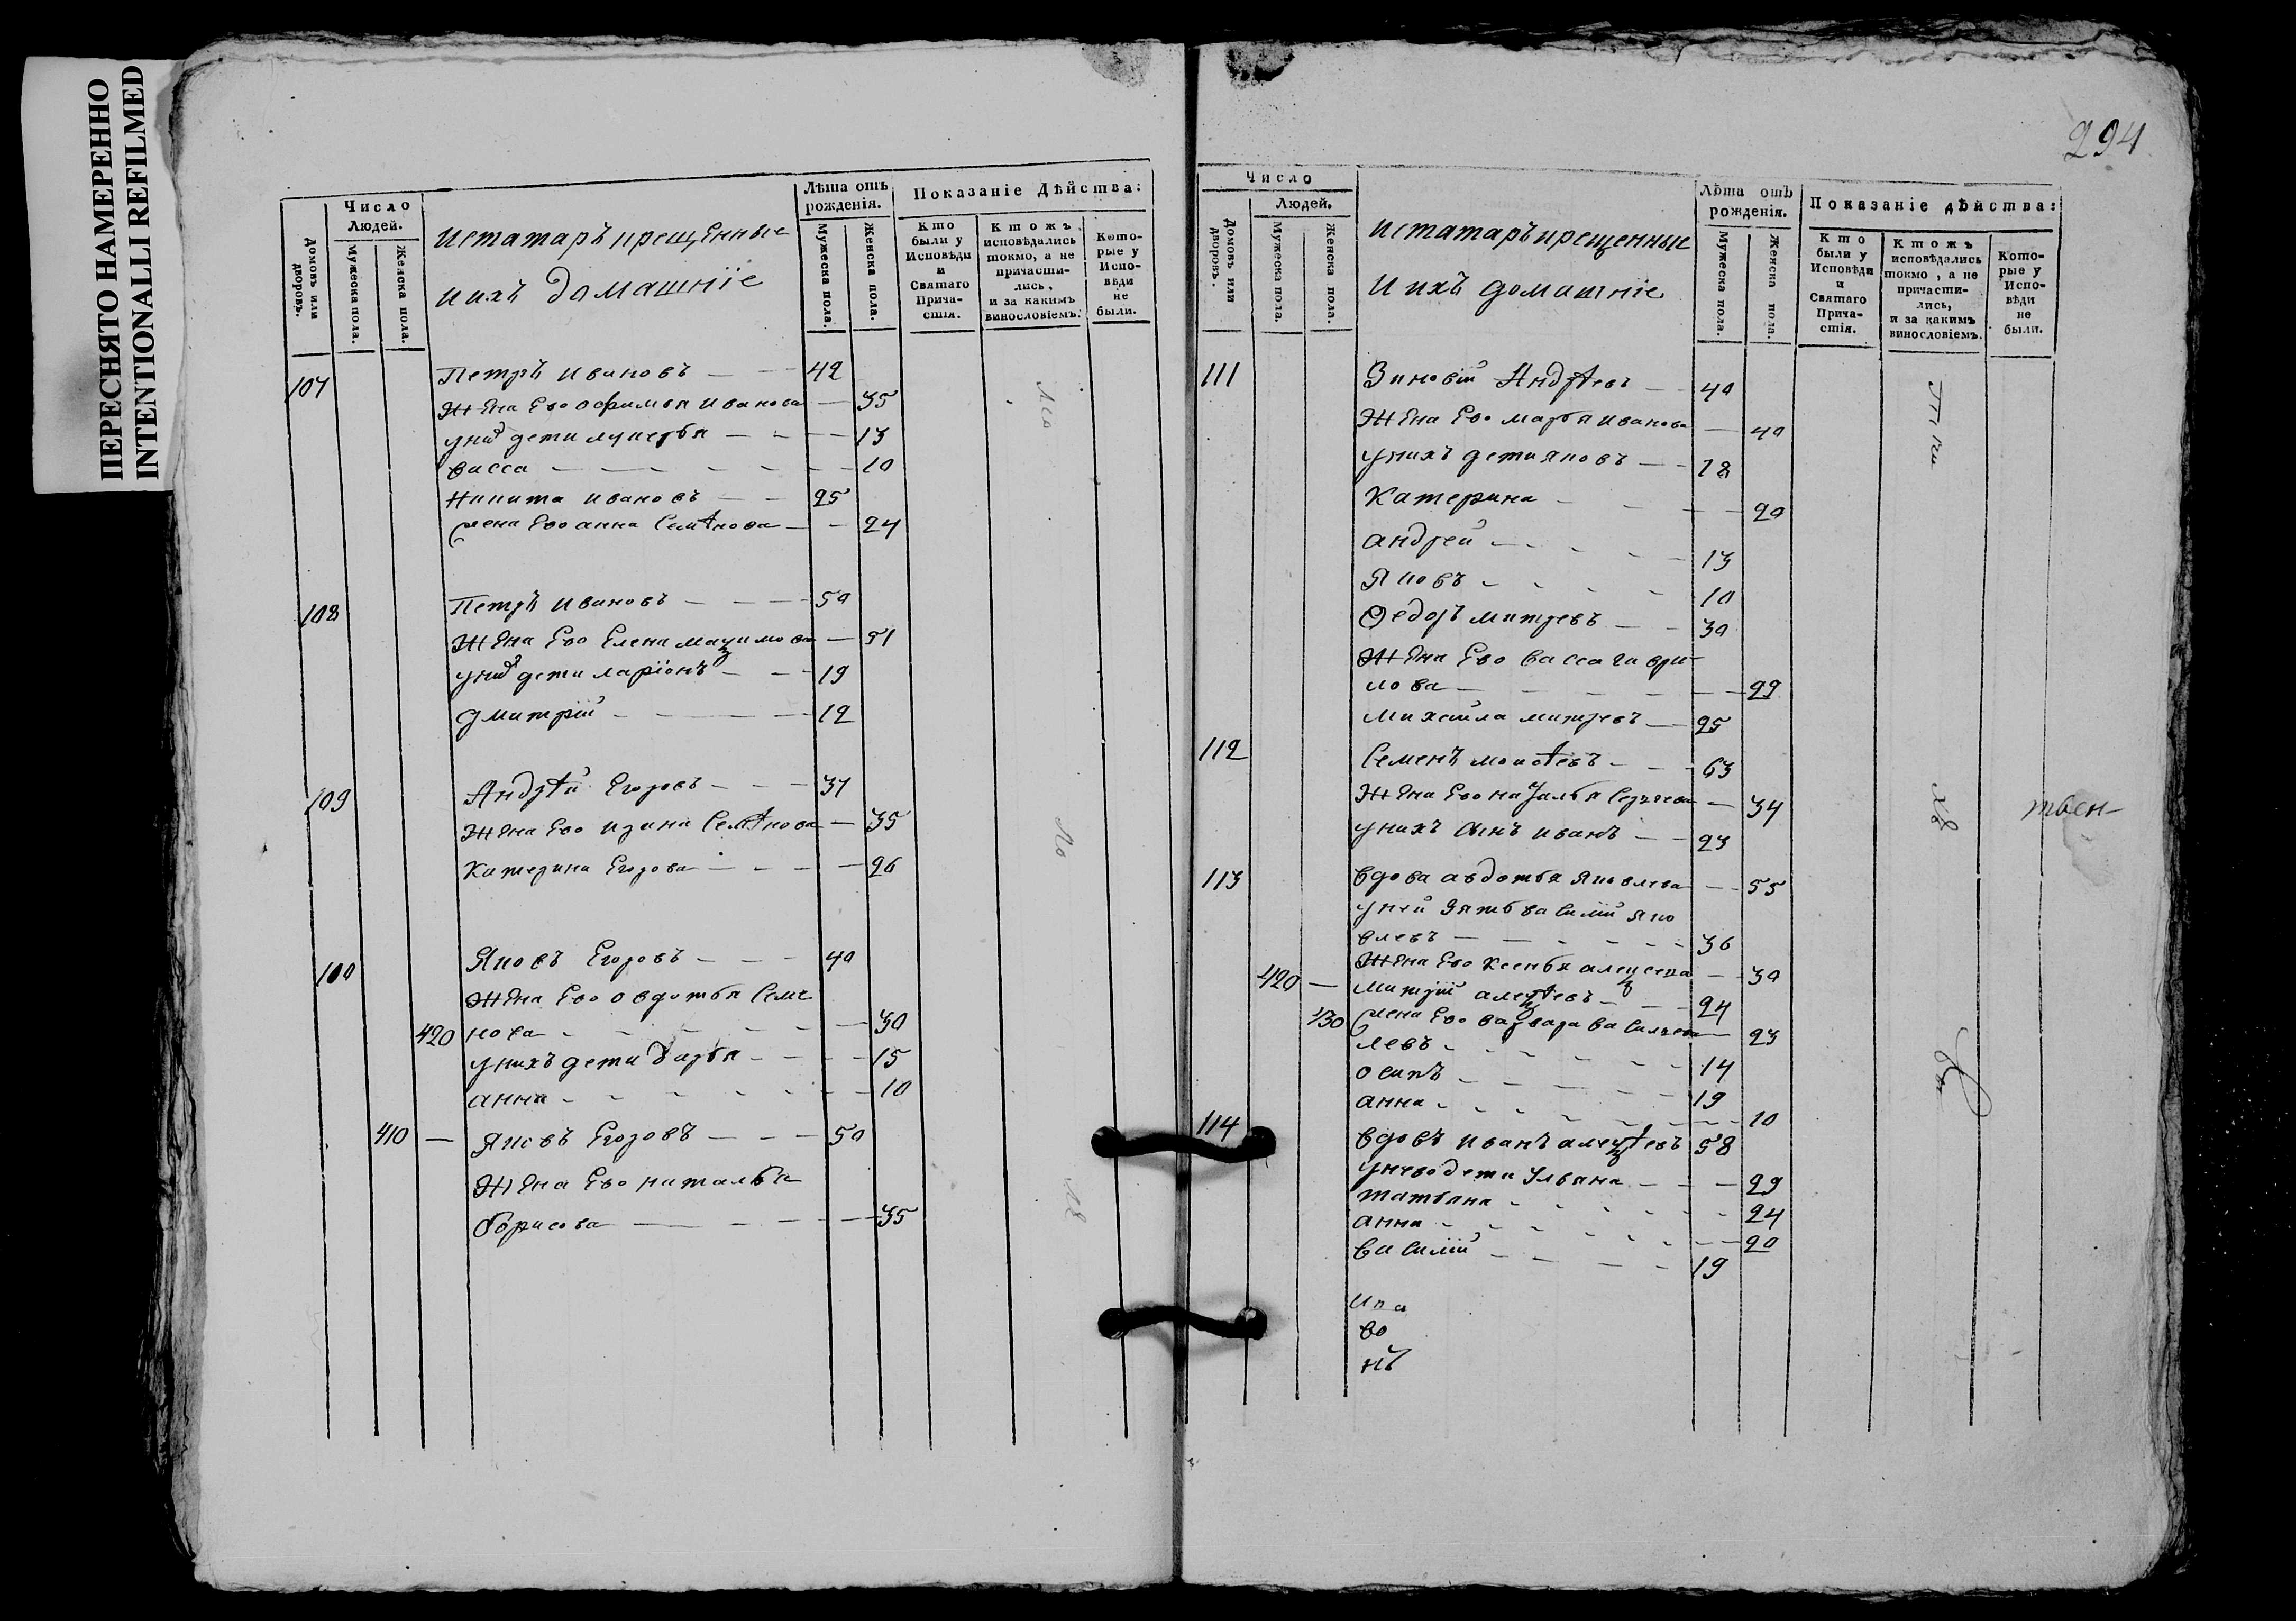 ПЕРЕСНЯТО НАМЕРЕННО
INTENTIONALLI REFILMED
294
Число
Людей.
Домовъ или дворовъ.
Мужеска пола.
Женска пола.
Истатаръ крещенные
ихъ домашніе
Лѣта отъ рожденія.
Мужеска пола.
Женска пола.
Показаніе Дѣйства:
Кто были у Исповѣди и Святаго Причастія.
Ктожъ исповѣдались токмо, а не причастились, и за какимъ винословіемъ.
Которые у Исповѣди не были.
107 Петръ Ивановъ 42
Жена Ево Офимья Иванова 35
дети 13
Васса 10
Никита Ивановъ 25
жена Ево анна Семѣнова 24
108 Петръ Ивановъ 50
Жена Ево Елена 51
дети ларіонъ 19
Дмитрій 12
109 Андрѣй Егоровъ 37
Жена Ево Ирина Семѣнова 35
Катерина Егорова 26
Яковъ Егоровъ 40
Жена Ево овдотья Семе
420 нова 30
унихъ дети дарья 15
анна 10
410 — Яковъ Егоровъ 50
Жена Ево наталья
борисова 35
Число
Людей.
Домовъ или дворовъ.
Мужеска пола.
Женска пола.
Истатаръ крещенные
и ихъ домашніе
Лѣта отъ рожденія.
Мужеска пола.
Женска пола.
Показаніе дѣйства:
Кто были у Исповѣди и Святаго Причастія.
Ктожъ исповѣдались токмо, а не причастились, и за какимъ винословіемъ.
Которые у Исповѣди не были.
111 Зиновій Андрѣевъ 40
Жена Ево марья иванова 40
унихъ дети яковъ 18
Катерина 20
андрей 13
Яковъ 10
Ѳедоръ митревъ 30
Жена Ево васса гаври
лова 29
михайла митревъ 25
112 Семенъ моисѣевъ 63
Жена Ево 34
унихъ сынъ иванъ 23
твен
113 вдова авдотья яковлева 55
уней зять василій яко
влевъ 36
Жена Ево Ксенья 30
420 — митрій алеѯѣевъ 24
430 жена Ево варвара 23
левъ 14
осипъ 19
анна 10
114 вдовъ иванъ алеѯѣевъ 58
унево дети Ульяна 29
татьяна 24
анна 20
василій 19
ика
во
нъ